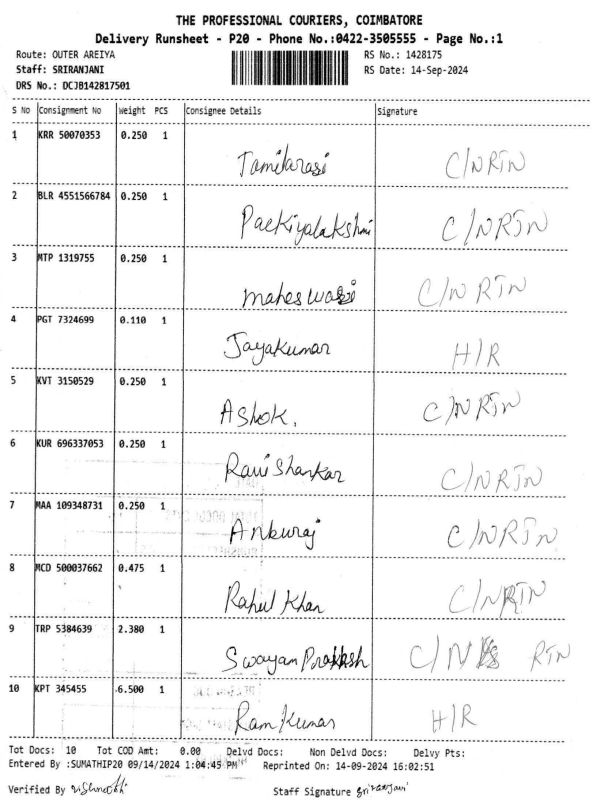 THE PROFESSIONAL COURIERS, COIMBATORE
Delivery Runsheet - P20 - Phone No.:0422-3505555 - Page No.:1
Route: OUTER AREIYA RS No.: 1428175
Staff: SRIRANJANI RS Date: 14-Sep-2024
DRS No.: DCJB142817501
S No Consignment No Weight PCS Consignee Details Signature
1 KRR 50070353 0.250 1
Tamilarasi C/N RTN
2 BLR 4551566784 0.250 1
Packiyalakshmi C/N RTN
3 MTP 1319755 0.250 1
maheswari C/N RTN
4 PGT 7324699 0.110 1
Jayakumar H/R
5 KVT 3150529 0.250 1
Ashok. C/N RTN
6 KUR 696337053 0.250 1
Ravi Shankar C/N RTN
7 MAA 109348731 0.250 1
Anburaj C/N RTN
8 MCD 500037662 0.475 1
Rahul Khan C/N RTN
9 TRP 5384639 2.380 1
Swayam Prakash C/N RTN
10 KPT 345455 6.500 1
Ram Kumar H/R
Tot Docs: 10 Tot COD Amt: 0.00 Delvd Docs: Non Delvd Docs: Delvy Pts:
Entered By :SUMATHIP20 09/14/2024 1:04:45 PM Reprinted On: 14-09-2024 16:02:51
Verified By Staff Signature Sriranjani